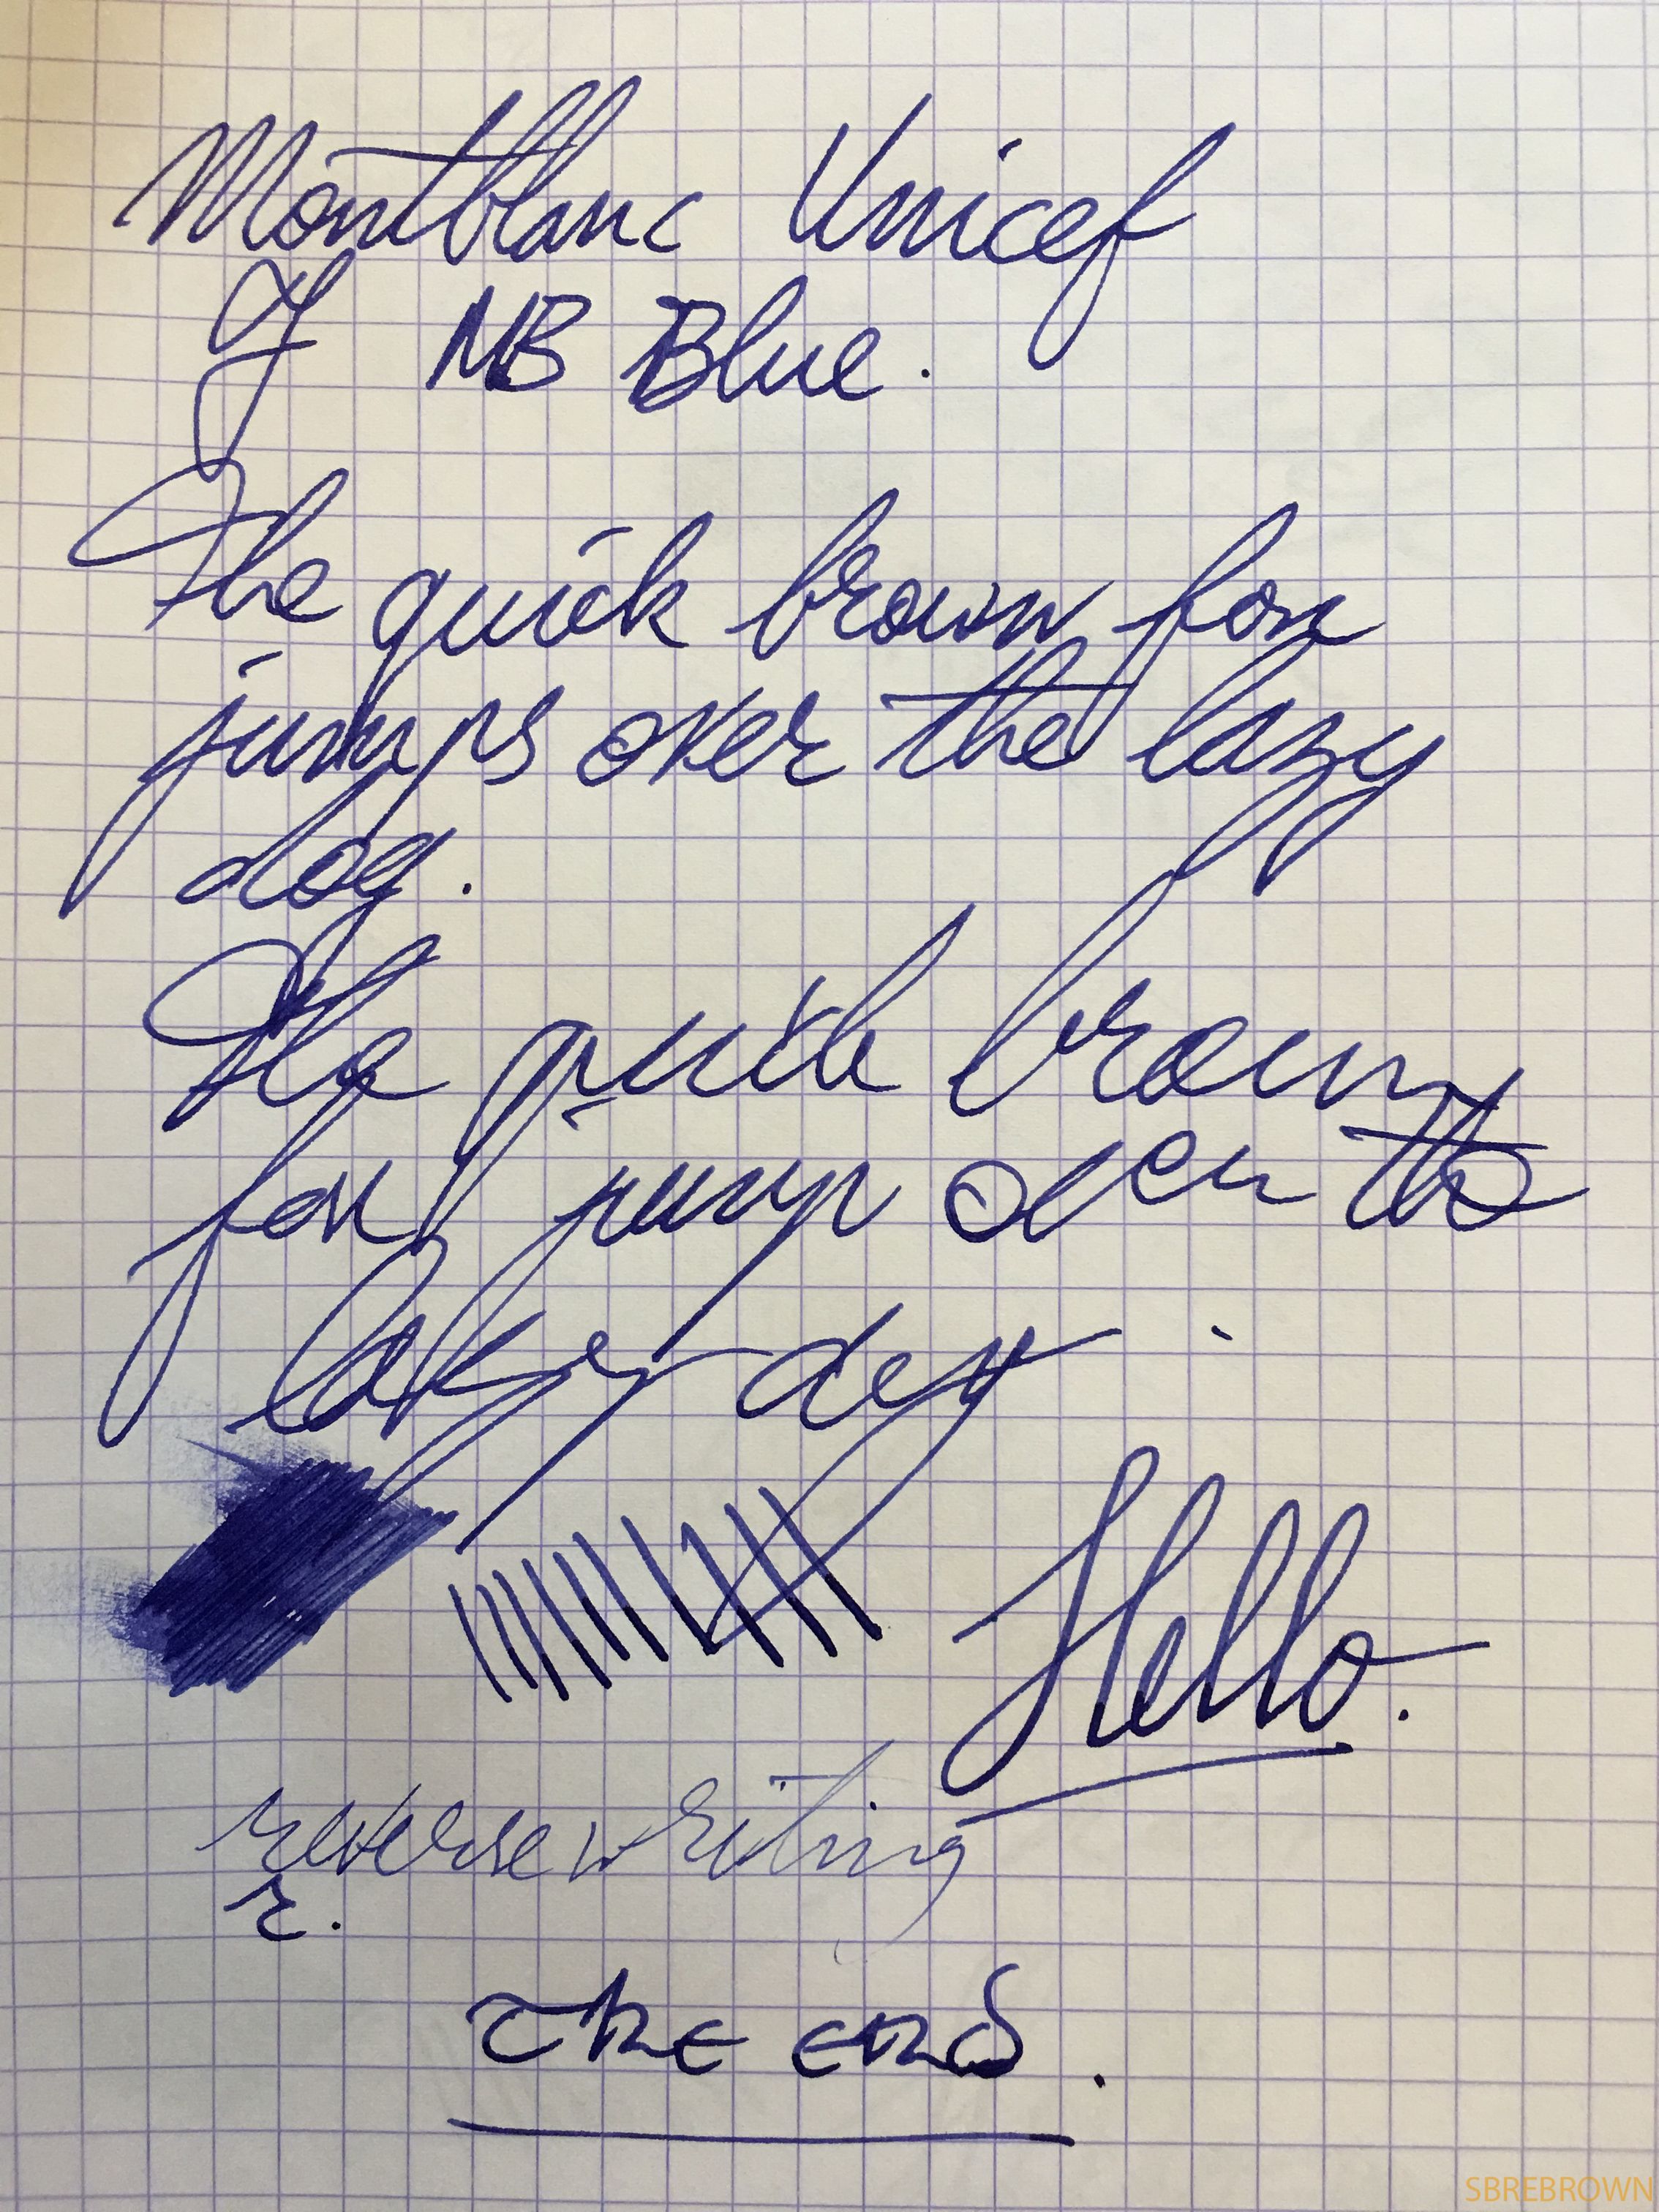 Montblanc Unicef
MB Blue.
The quick brown fox
jumps over the lazy
dog.
The quick brown
fox jump over the
lazy dog.
Hello.
reverse writing
r.
The end.
SBREBROWN